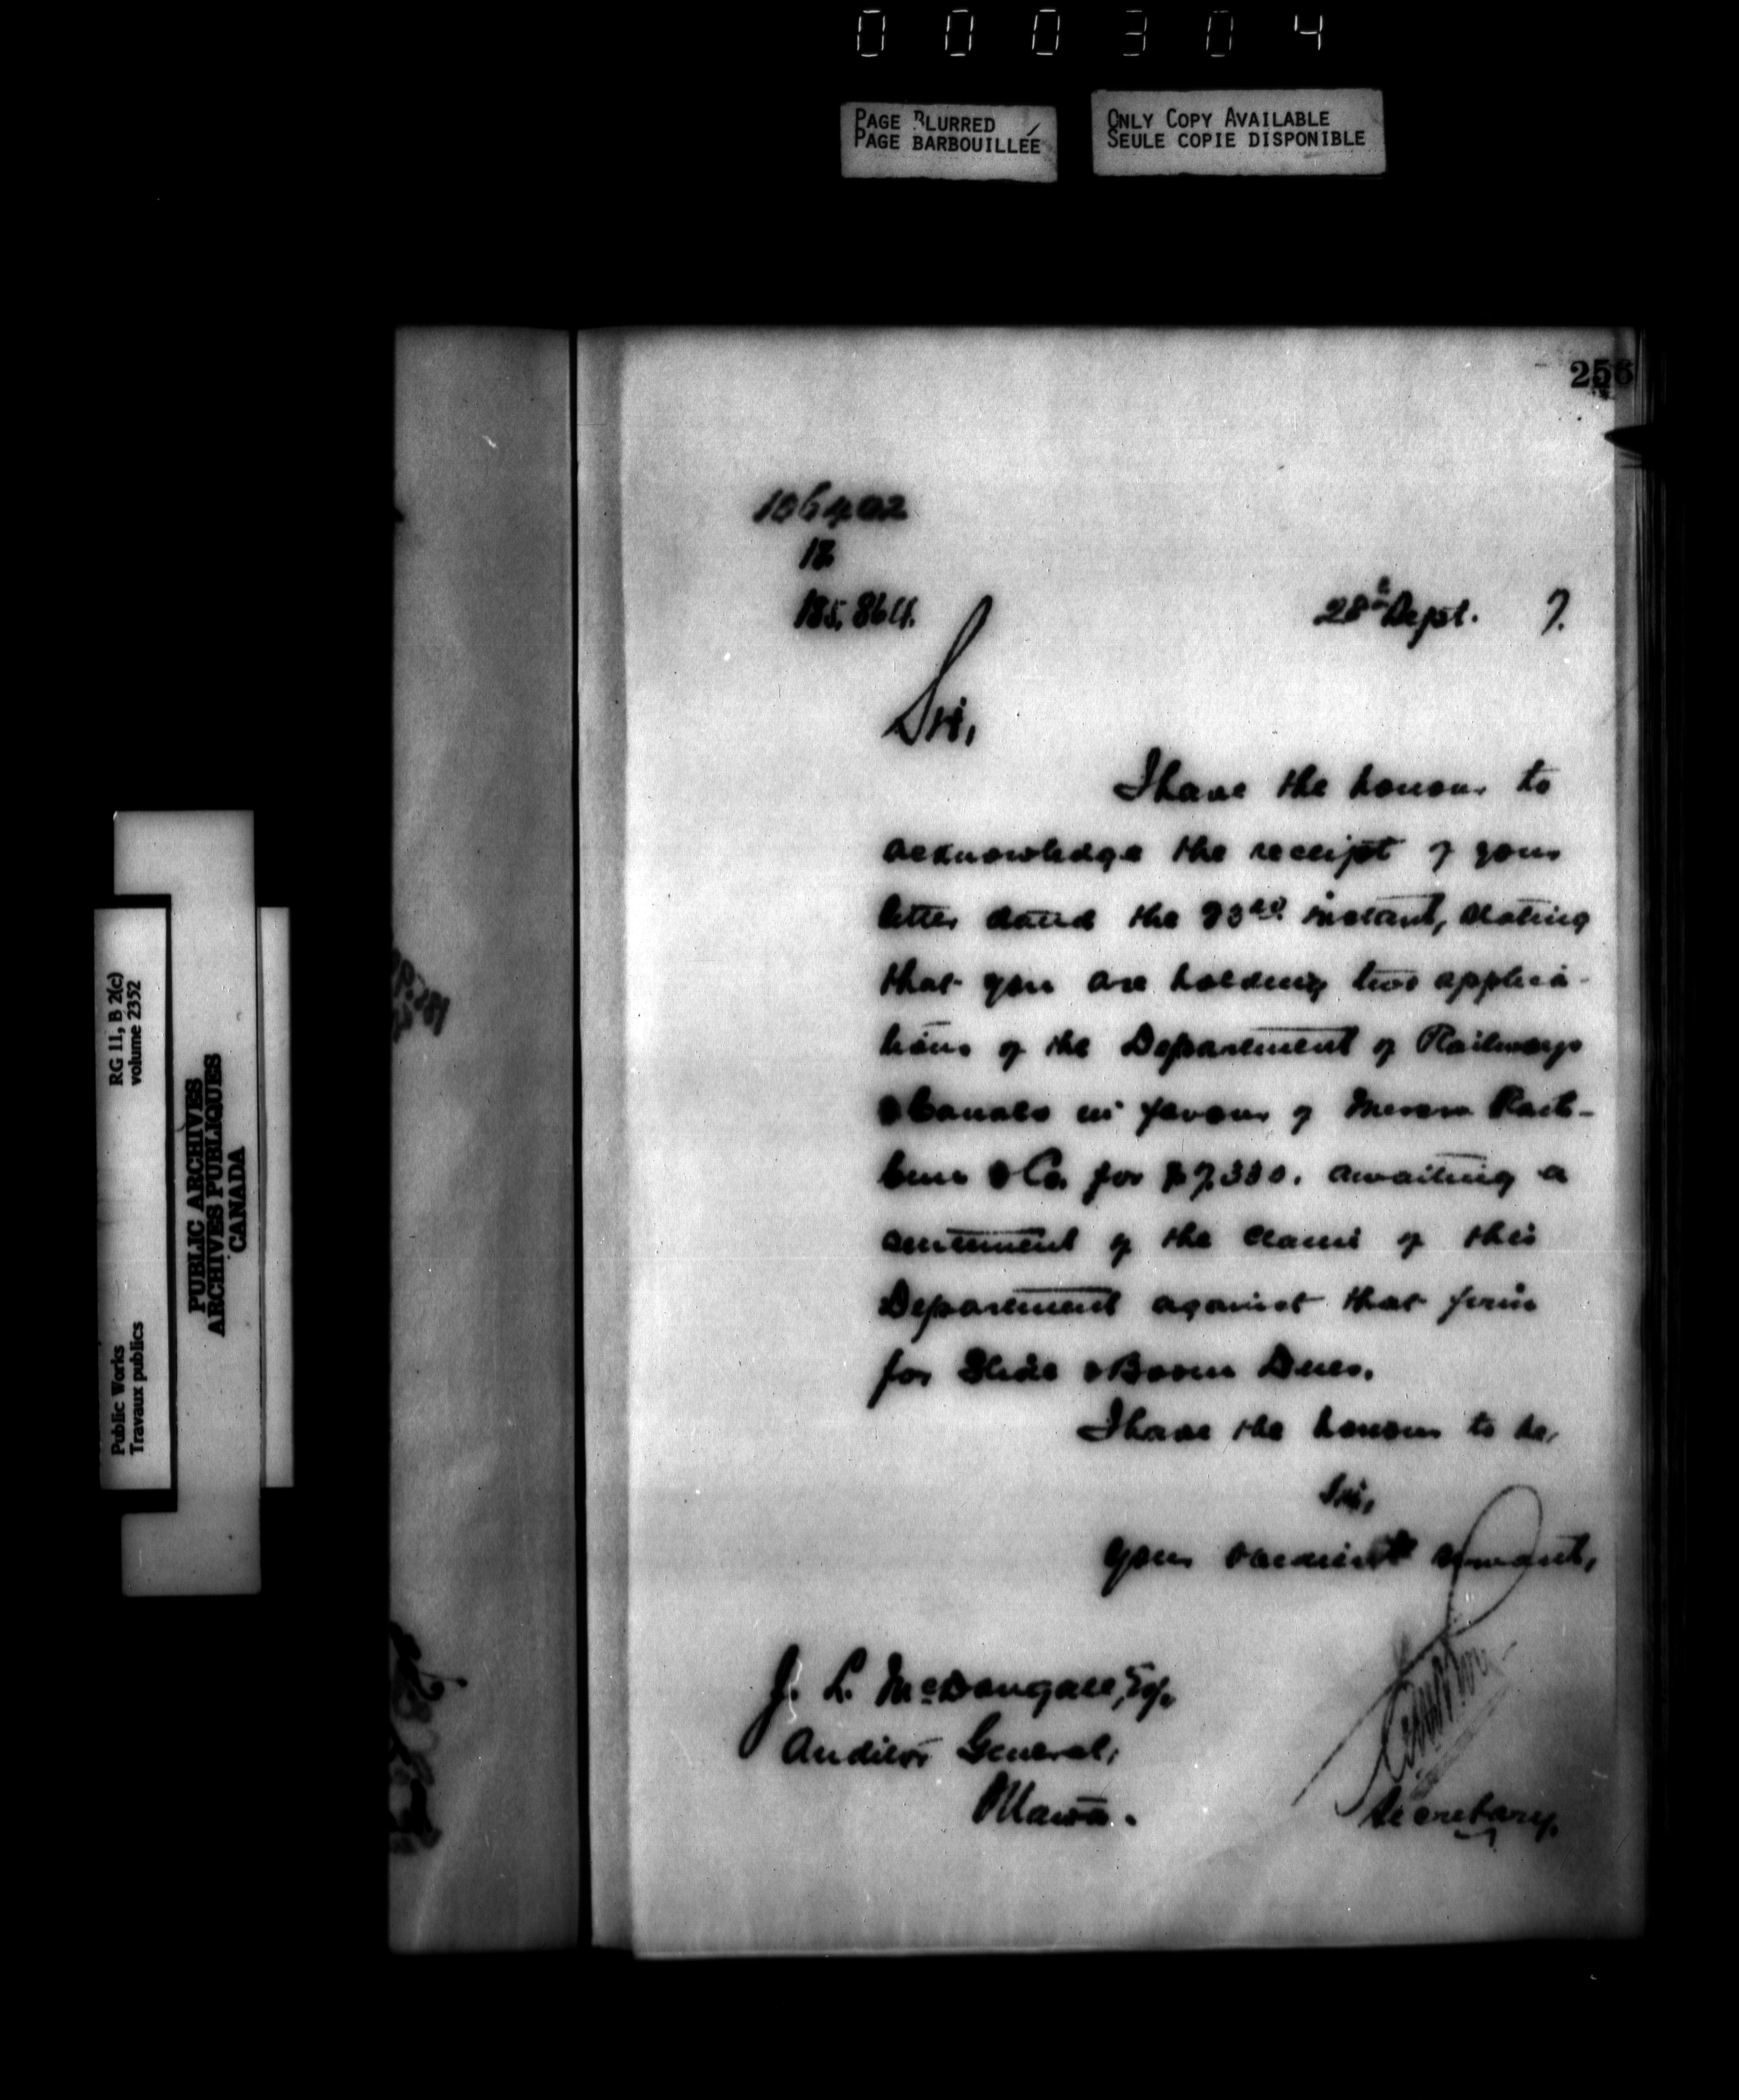 000304
PAGE BLURRED
PAGE BARBOUILLÉE
ONLY COPY AVAILABLE
SEULE COPIE DISPONIBLE
256
18
28th Sept. 7.
Sir,
I have the honour to
acknowledge the receipt of your
letter dated the 23rd instant, stating
that you are holding two applica-
tions of the Department of Railways
& Canals in favour of Messrs
& Co. for awaiting a
of the claim of this
Department against that firm
for Slide & Boom Dues.
I have the honour to be,
Sir,
Your obedient servant,
J. L. McDougall, Esq.
Auditor General,
Ottawa.
Secretary.
RG 11, B 2(c)
volume 2352
Public Works
Travaux publics
PUBLIC ARCHIVES
ARCHIVES PUBLIQUES
CANADA